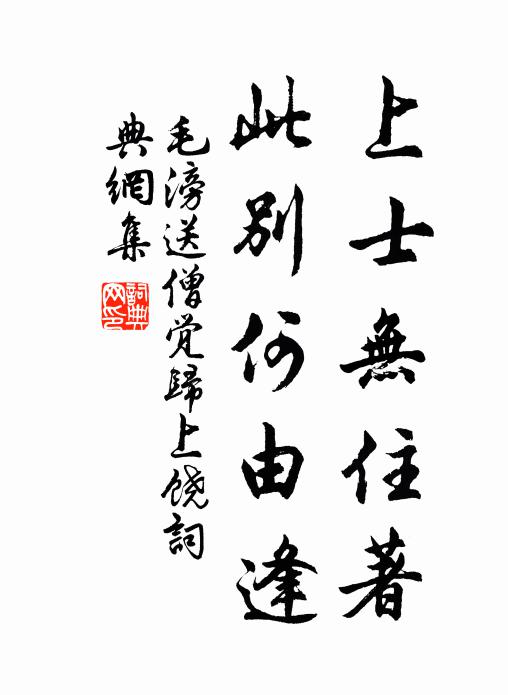 上士無住著
此別何由逢
毛滂送僧觉歸上饒詞
典網集
詞典網印